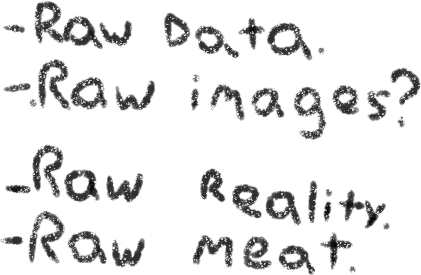 -Raw Data.
-Raw images?
-Raw Reality.
-Raw meat.